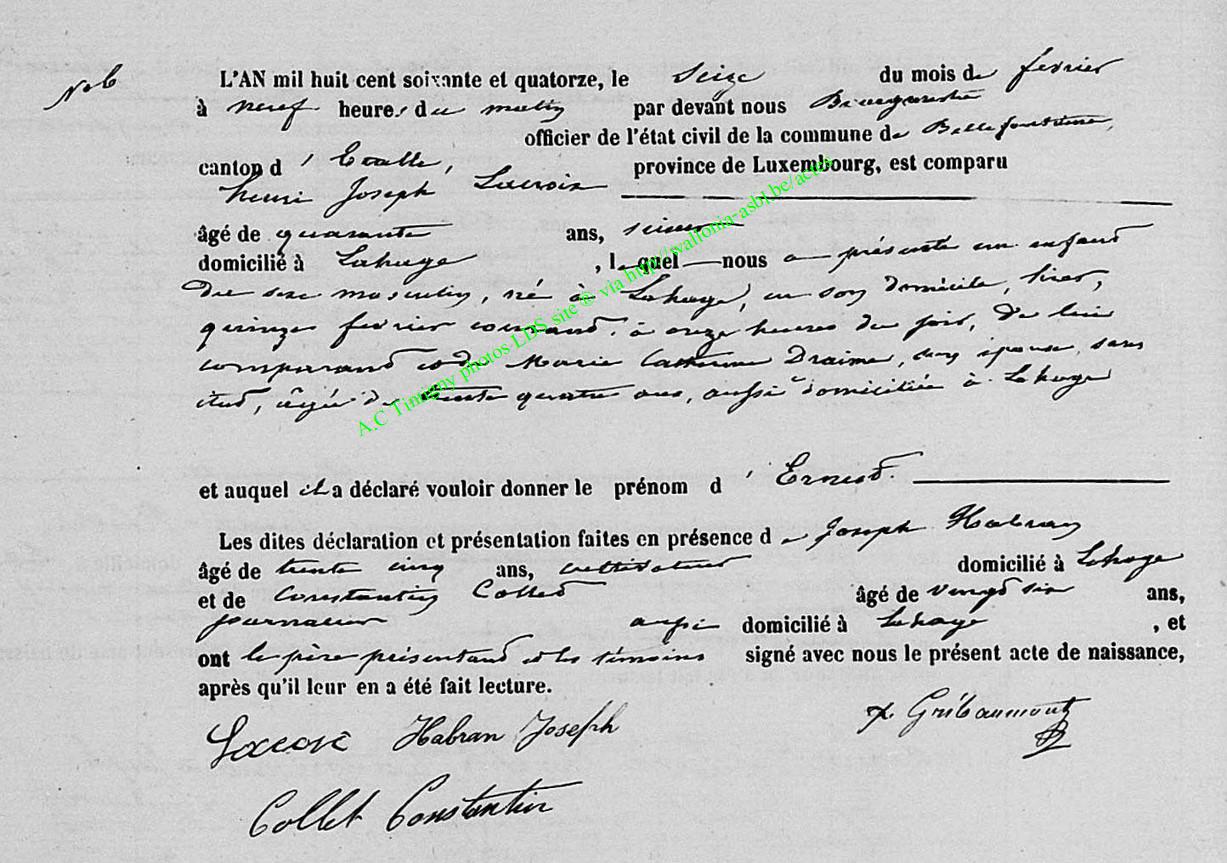 No 6
L'AN mil huit cent soixante et quatorze, le seize du mois de fevrier
à neuf heures du matin par devant nous Bourgmestre
officier de l'état civil de la commune de Bellefontaine,
canton d'Etalle, province de Luxembourg, est comparu
henri Joseph Lacroix
âgé de quarante ans,
domicilié à Lahage, lequel nous a présenté un enfant
du sexe masculin, né à Lahage, en son domicile, hier,
quinze fevrier courant, à onze heures du soir, de lui
comparant et de Marie Catherine Draime, son épouse, sans
état, âgée de trente quatre ans, aussi domiciliée à Lahage
et auquel il a déclaré vouloir donner le prénom d'Ernest
Les dites déclaration et présentation faites en présence de Joseph Habran
âgé de trente cinq ans, cultivateur domicilié à Lahage
et de Constantin Collet âgé de vingt six ans,
journalier aussi domicilié à Lahage, et
ont le père présentant et les témoins signé avec nous le présent acte de naissance,
après qu'il leur en a été fait lecture.
Habran Joseph Gribaumont
Collet Constantin
A.C Tintigny photos LDS site © via http://wallonia-asbl.be/actes